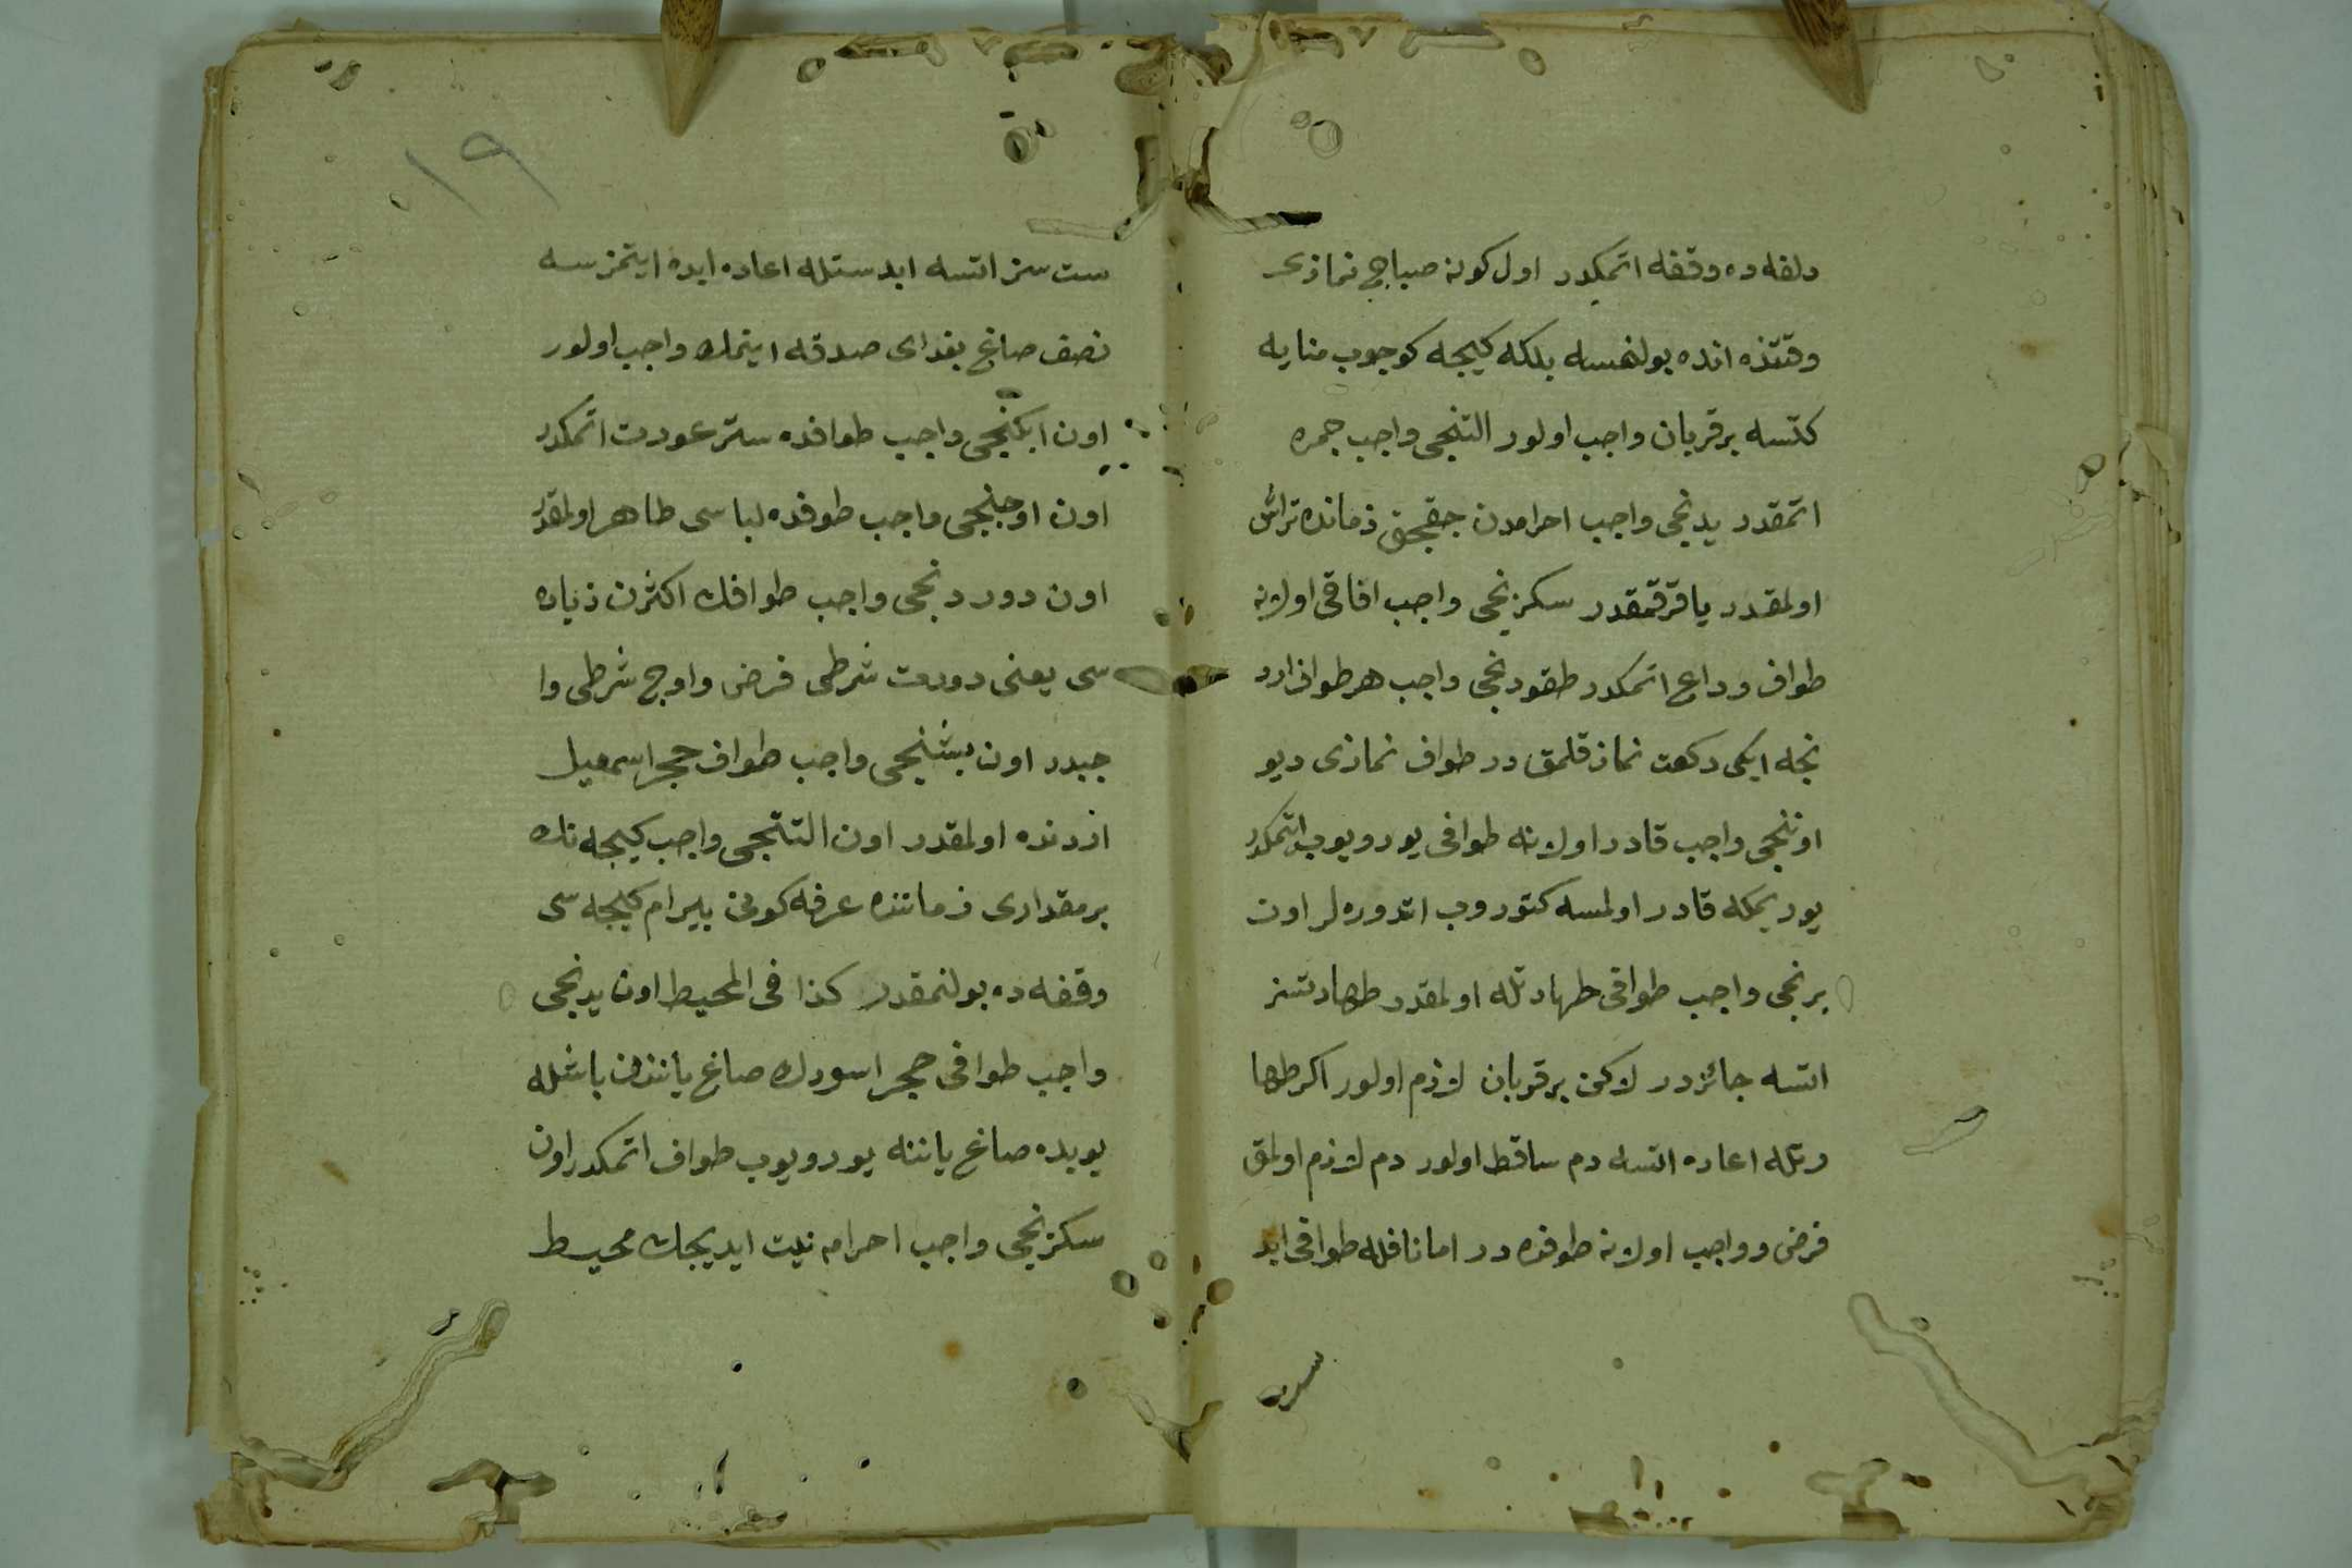 دلفه ده وقفه اتمكدر اول كونه صباح نمازى
وقتنده انده بولنمسه بلكه كيجه كوجوب منايه
كتسه بر قربان واجب اولور التنجى واجب جمره
اتمقدر يدنجى واجب احرامدن جقجق زمانده تراش
اولمقدر يا قرقمقدر سكزنجى واجب افاقى اولانه
طواف وداع اتمكدر طقوزنجى واجب هر طواف ارد
نجه ايكى ركعت نماز قلمق در طواف نمازى ديو
اوننجى واجب قادر اولانه طوافى يورويوب اتمكدر
يوريمكه قادر اولمسه كتوروب اتدوره لر اون
برنجى واجب طوافى طهارتله اولمقدر طهارتسز
اتسه جائزدر لاكن بر قربان لازم اولور اكر طها
رتله اعاده اتسه دم ساقط اولور دم لازم اولمق
فرض و واجب اولانه طوفده در اما نافله طوافى ابد
ست
١٩
ست سز اتسه ابدستله اعاده ايده ايتمزسه
نصف صاغ بغداى صدقه ايتمك واجب اولور
اون ايكنجى واجب طوافده ستر عورت اتمكدر
اون اوجنجى واجب طوفده لباسى طاهر اولمقدر
اون دوردنجى واجب طوافك اكثرن زياده
سى يعنى دورت شرطى فرض و اوج شرطى وا
جبدر اون بشنجى واجب طواف حجر اسمعيل
ازدنده اولمقدر اون التنجى واجب كيجه نك
بر مقدارى زماننده عرفه كونى بيرام كيجه سى
وقفه ده بولنمقدر كذا فى المحيط اون يدنجى
واجب طوافى حجر اسودك صاغ ياننذن باشله
يوبده صاغ ياننه يورويوب طواف اتمكدر اون
سكزنجى واجب احرام نيت ايديجك محيط